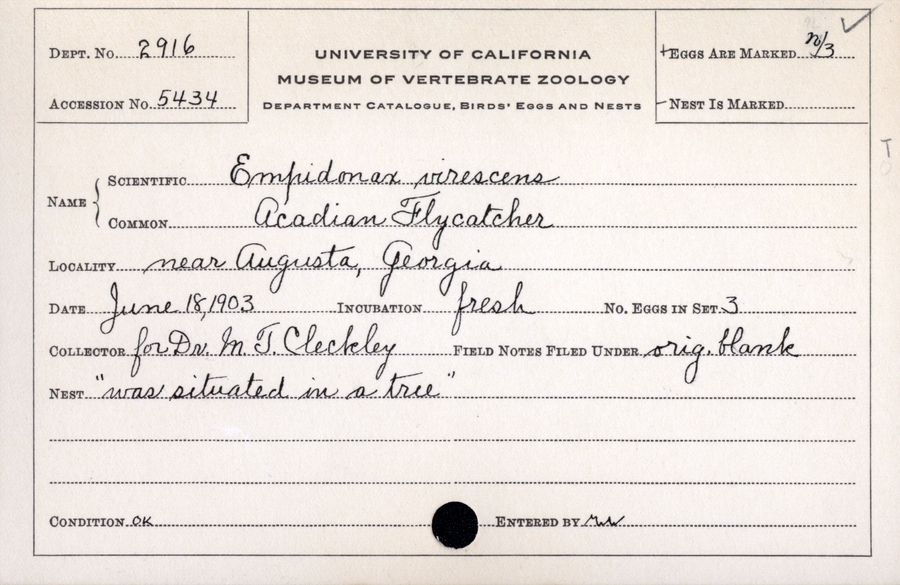 DEPT. No. 2916
ACCESSION No. 5434
UNIVERSITY OF CALIFORNIA
MUSEUM OF VERTEBRATE ZOOLOGY
DEPARTMENT CATALOGUE, BIRDS' EGGS AND NESTS
+EGGS ARE MARKED n/3
–NEST IS MARKED
NAME
SCIENTIFIC Empidonax virescens
COMMON Acadian Flycatcher
LOCALITY near Augusta, Georgia
DATE June 18, 1903 INCUBATION fresh NO. EGGS IN SET 3
COLLECTOR for Dr. M. T. Cleckley FIELD NOTES FILED UNDER orig. blank
NEST "was situated in a tree"
CONDITION OK ENTERED BY